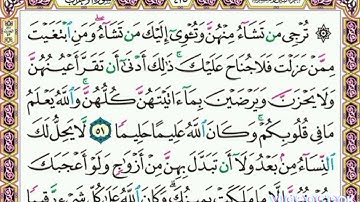 ۞ تُرْجِى مَن تَشَآءُ مِنْهُنَّ وَتُـْٔوِىٓ إِلَيْكَ مَن تَشَآءُ ۖ وَمَنِ ٱبْتَغَيْتَ
مِمَّنْ عَزَلْتَ فَلَا جُنَاحَ عَلَيْكَ ۚ ذَٰلِكَ أَدْنَىٰٓ أَن تَقَرَّ أَعْيُنُهُنَّ
وَلَا يَحْزَنَّ وَيَرْضَيْنَ بِمَآ ءَاتَيْتَهُنَّ كُلُّهُنَّ ۚ وَٱللَّهُ يَعْلَمُ
مَا فِى قُلُوبِكُمْ ۚ وَكَانَ ٱللَّهُ عَلِيمًا حَلِيمًا ٥١ لَّا يَحِلُّ لَكَ
ٱلنِّسَآءُ مِنۢ بَعْدُ وَلَآ أَن تَبَدَّلَ بِهِنَّ مِنْ أَزْوَٰجٍ وَلَوْ أَعْجَبَكَ